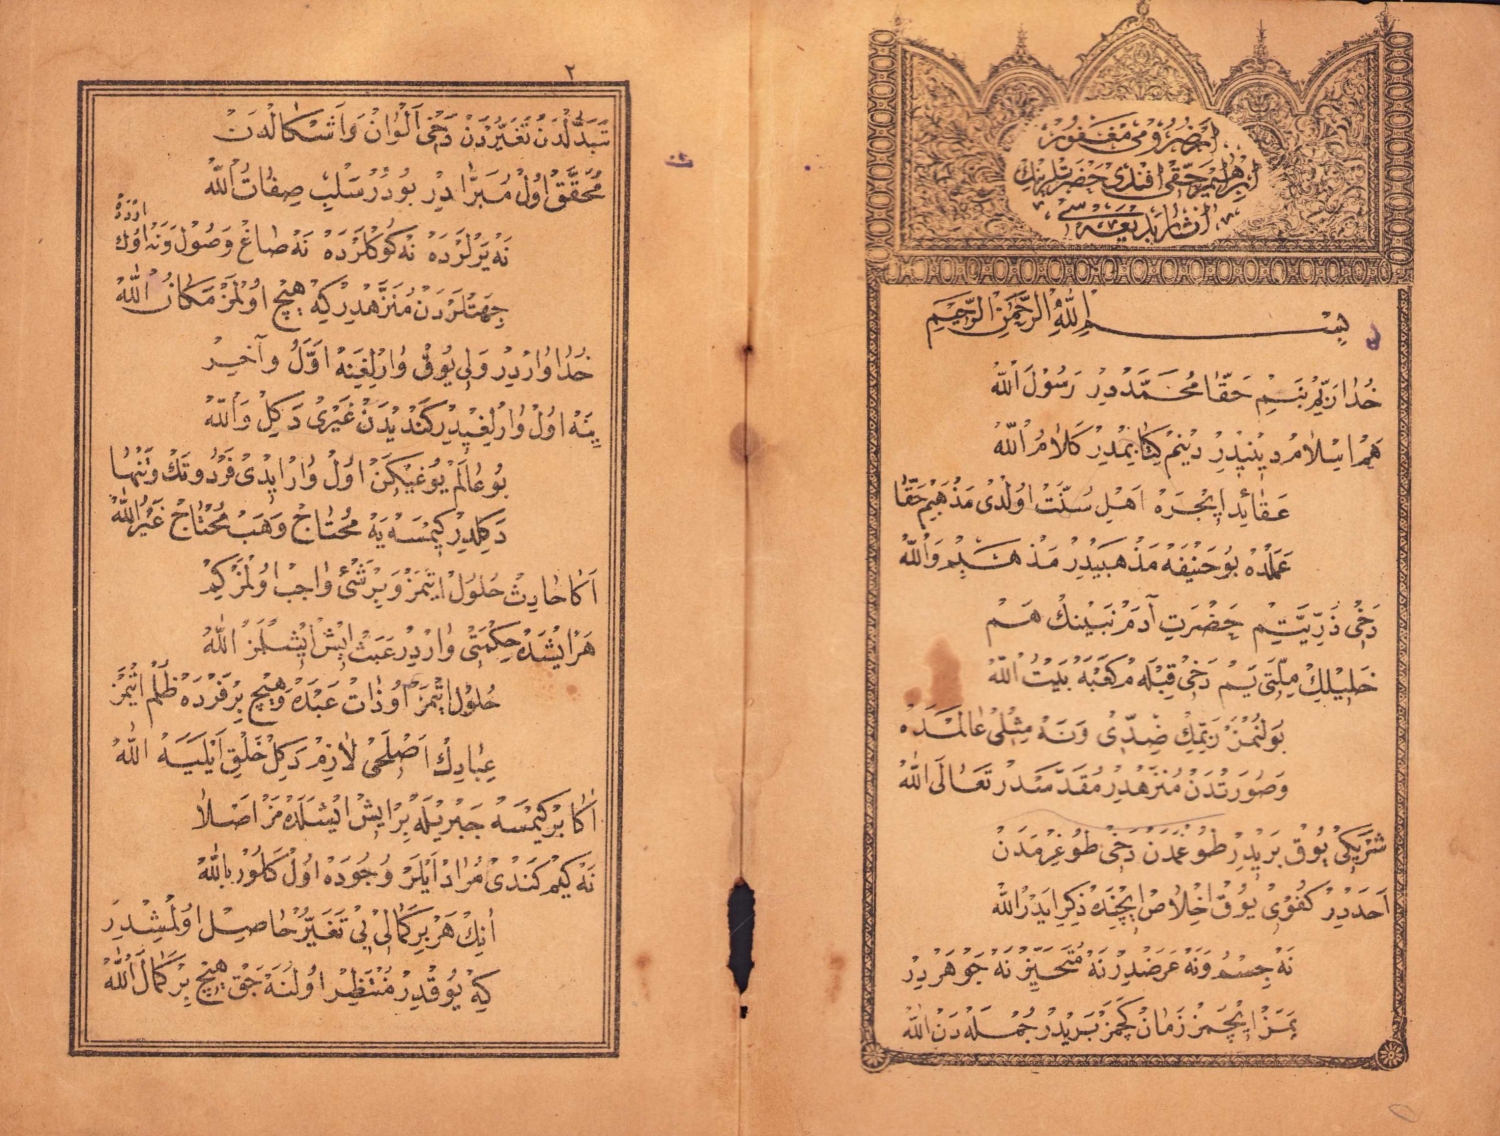 ارضرومی مغفور
ابراهیم حقی افندی حضرتلرینک
آثار بدیعه سی
بِسْمِ اللّٰهِ الرَّحْمٰنِ الرَّحِیمِ
خُدَا رَبِّمْ نَبِیمْ حَقَّا مُحَمَّدْ دِرْ رَسُولَ اللّٰه
هَمْ اِسْلَامْ دِینِیدِرْ دِینِمْ کِتَابِمْدِرْ کَلَامُ اللّٰه
عَقَائِد اِیچْرَه اَهْلِ سُنَّتْ اوُلْدِی مَذْهَبِیمْ حَقَّا
عَمَلْدَه بُو حَنِیفَه مَذْهَبِیدِرْ مَذْهَبِمْ وَاللّٰه
دَخِی ذُرِّیَّتِیمْ حَضْرَتِ آدَمْ نَبِینِكْ هَمْ
خَلِیلِكْ مِلَّتِی یَمْ دَخِی قِبْلَه مْ کَعْبَه بَیْتُ اللّٰه
بُولُنْمَزْ رَبِّمِكْ ضِدِّی وَنَه مِثْلِی عَالَمْدَه
وَصُورَتْدَنْ مُنَزَّهْدِرْ مُقَدَّسْدِرْ تَعَالَی اللّٰه
شَرِیکِی یُوقْ بَرِیدِرْ طُوغْمَدَنْ دَخِی طُوغُرْمَدَنْ
اَحَدْدِرْ کُفْوِی یُوقْ اِخْلَاصْ اِیچِنْدَه ذِکْر اِیدَرْ اللّٰه
نَه جِسْمُ وَنَه عَرَضْدِرْ نَه مُتَحَیِّزْ نَه جَوْهَرْدِرْ
یِمَزْ اِیچْمَزْ زَمَانْ کَچْمَزْ بَرِیدِرْ جُمْلَه دَنْ اللّٰه
٢
تَبَدُّلْدَنْ تَغَیُّرْدَنْ دَخِی اَلْوَانْ وَاَشْکَالْدَنْ
مُحَقَّقْ اوُلْ مُبَرَّا دِرْ بُودُرْ سَلْبِ صِفَاتُ اللّٰه
نَه یَرْلَرْدَه نَه کُوکْلَرْدَه نَه صَاغْ وَصُولْ وَنَه اوُكْ
اَرْدَه
جِهَتْلَرْدَنْ مُنَزَّهْدِرْ کِه هِیچْ اوُلْمَزْ مَکَانُ اللّٰه
خُدَا وَارْدِرْ وَلِی یُوقْ وَارْلِغِینَه اَوَّلُ وآخِرْ
یِنَه اوُلْ وَارْلِغِیدِرْ کَنْدِیدَنْ غَیْرِی دَکِلْ وَاللّٰه
بُو عَالَمْ یُوغِیکَنْ اوُلْ وَارْ اِیدِی فَرْدُ وتَكْ وتَنْهَا
دَکِلْدِرْ کِیمْسَه یَه مُحْتَاجْ وَهَبْ مُحْتَاجْ غَیْرُ اللّٰه
اَکَا حَادِثْ حُلُولْ اِیتْمَزْ وَبِرْ شَیْئ وَاجِبْ اوُلْمَزْ کِیمْ
هَرْ اِیشْدَه حِکْمَتِی وَارْدِرْ عَبَثْ اِیشْ اِیشْلَمَزْ اللّٰه
حُلُولْ اِیتْمَزْ اوُ ذَاتْ عَبْدَه وَهِیچْ بِرْ فَرْدَه ظُلْم اِیتْمَزْ
عِبَادِكْ اَصْلَحِی لَازِمْ دَکِلْ خَلْقِ اَیْلَیَه اللّٰه
اَکَا بِرْ کِیمْسَه جَبْرِیلَه بِرْ اِیشْ اِیشْلَدَه مَزْ اَصْلَا
نَه کِیمْ کَنْدِی مُرَاد اَیْلَرْ وُجُودَه اوُلْ کَلُورْ بِاللّٰه
اَنِكْ هَرْ بِرْ کَمَالِی بِی تَغَیُّرْ حَاصِلْ اوُلْمِشْدِرْ
کِه یُوقْدِرْ مُنْتَظِرْ اوُلَنَه جَقْ هِیچْ بِرْ کَمَالُ اللّٰه